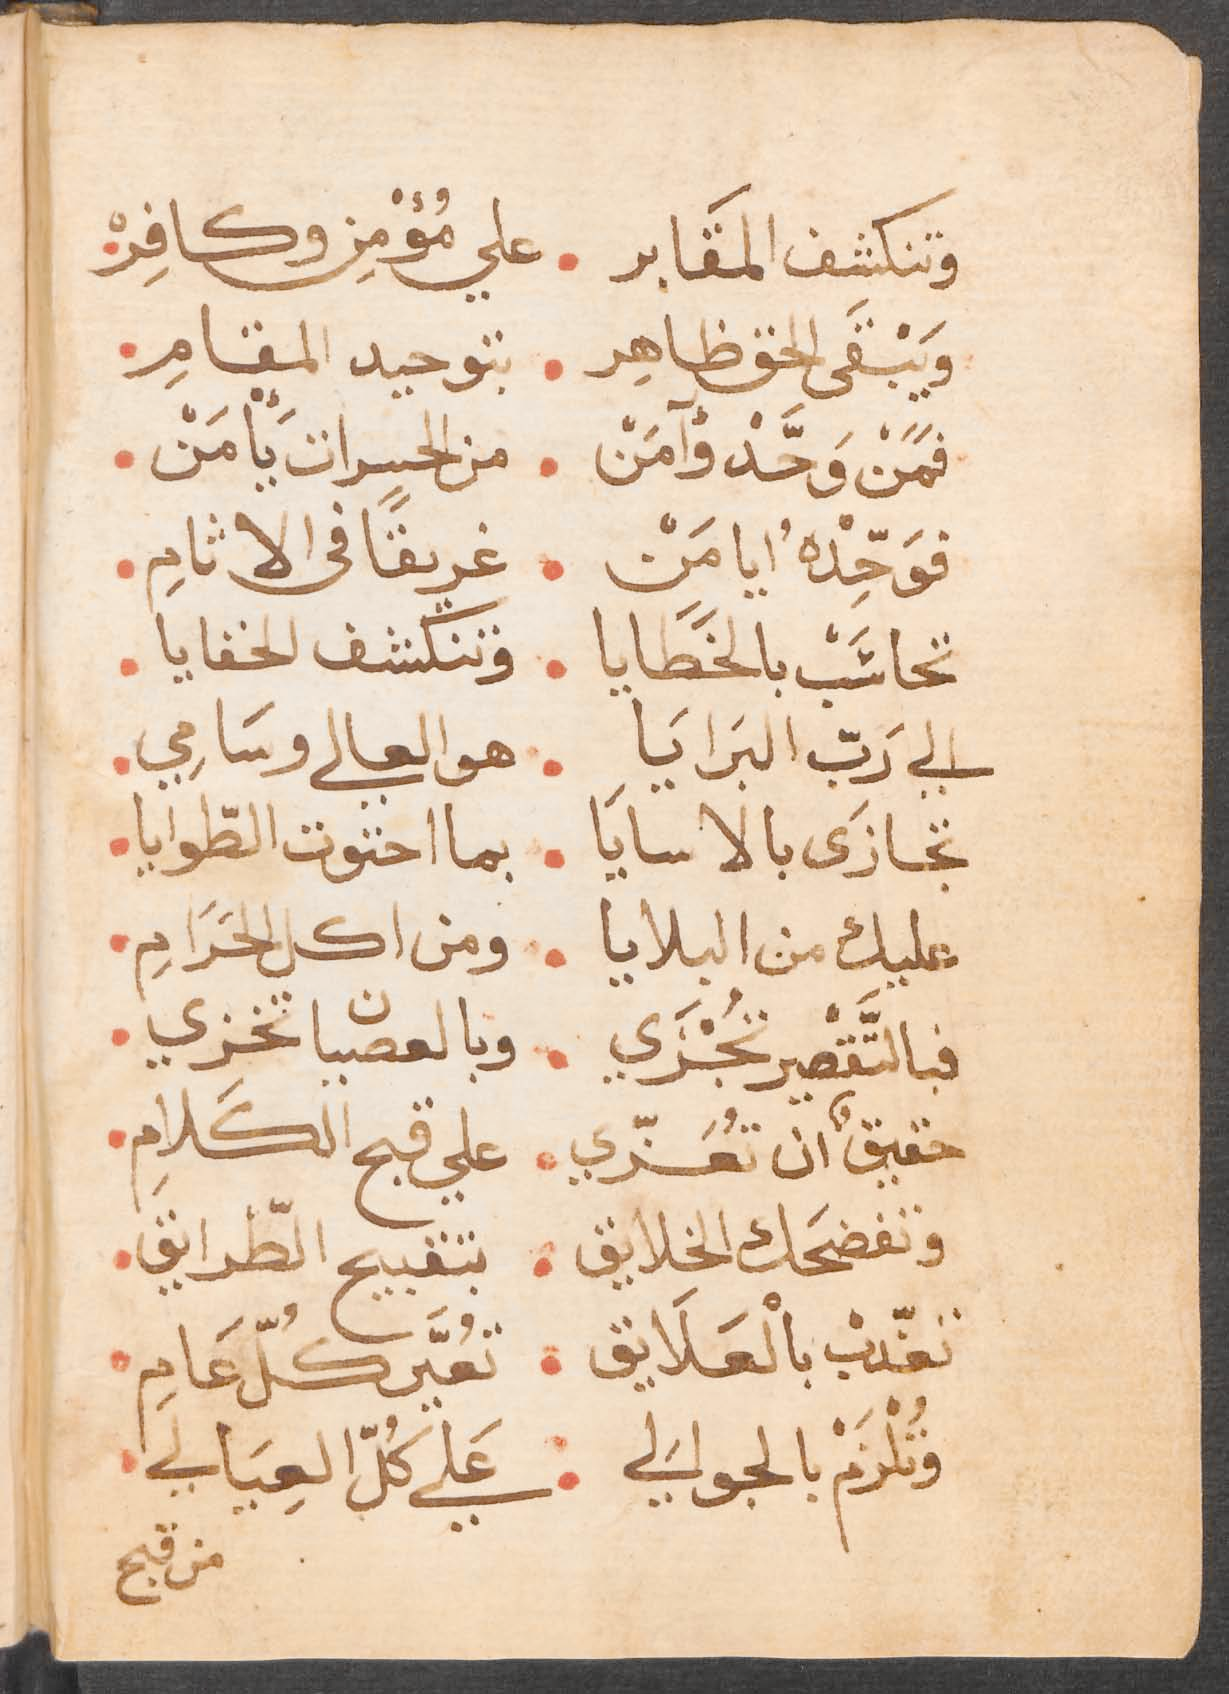 وتنكشف المقَابر • علي مُؤْمِنٍ وكافِرْ •
وَيَبْقَى الحق ظاهِر • بتوحيد المقامِ •
فَمَنْ وَحَّدْ وْآمَنْ • من الحسرات يَأْمَنْ •
فوَحِّدْهُ ايا مَنْ • غريقًا فى الاثامِ •
تحاسَبْ بالخَطَايا • وتنكشف الخفايا •
الي رَبّ البَرَايَا • هو العالي وسَامِي •
تجازَى بالاسايَا • بما احتوت الطّوايا •
عليك من البلايا • ومن اكل الحَرَامِ •
فبالتَّقْصِير تُجْزَي • وبالعصيان تخزي •
حقيقٌ ان تُعَزّي • علي قبح الكَلامِ •
وتفضحَك الخلايق • بتقبيح الطّرايق •
تعّذب بالْعَلَايق • تُعَيَّر كُلّ عَامِ •
وْتُلْزَمْ بالجوالي • عَلي كُلّ العِيَالي •
من قبح